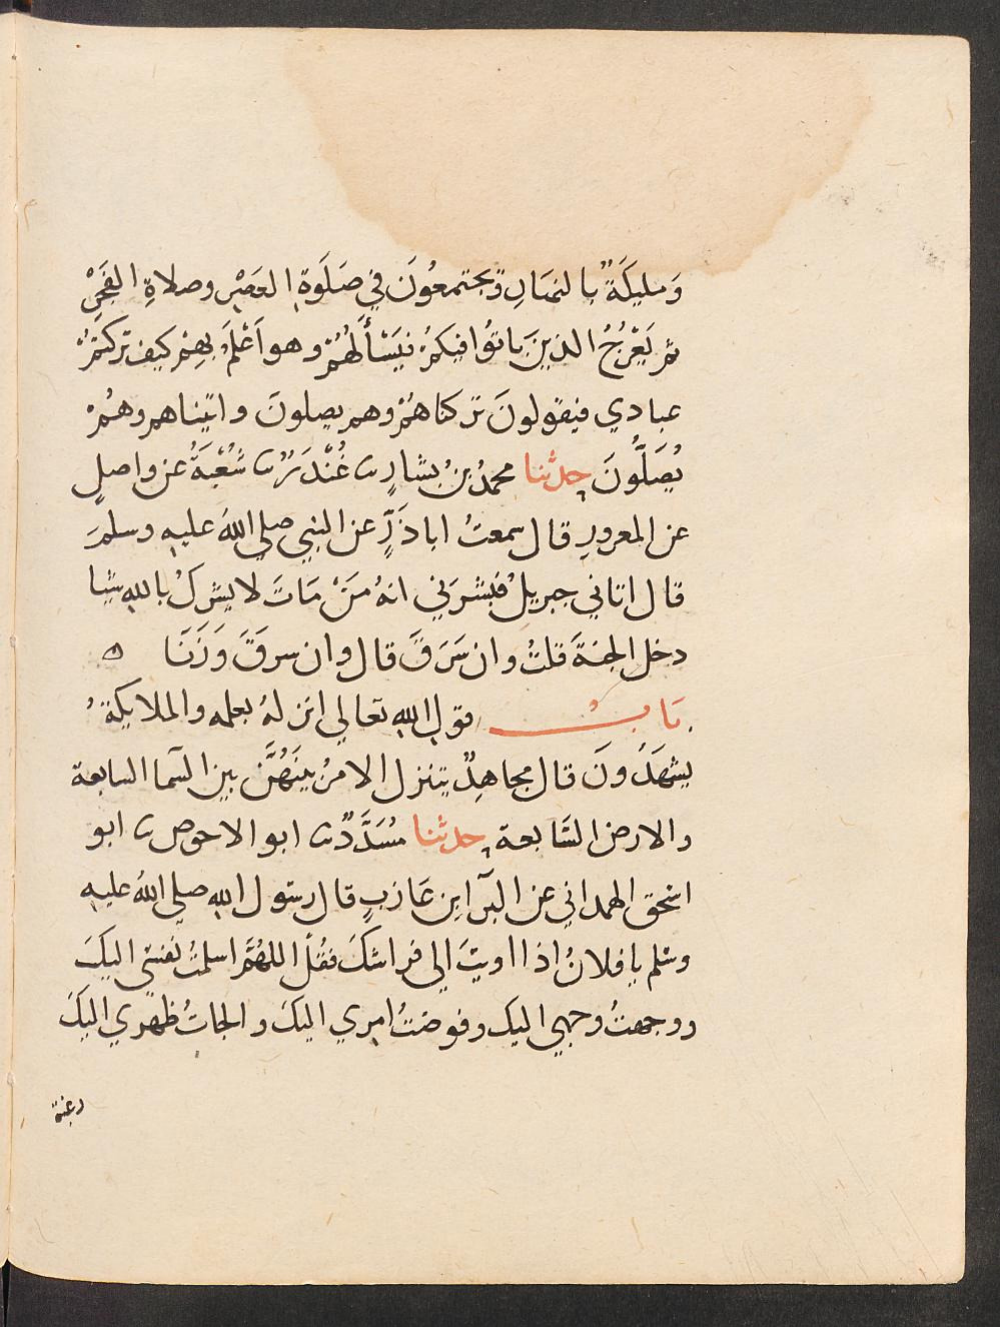 وَمليكَةٌ بالنهَارِ وَيجتمعُونَ في صَلَوةِ العَصْرِ وصلاةِ الفَجْرِ
ثم يَعْرُجُ الذينَ بَاتوُا فيكمْ فيَسْألهُمْ وهو اَعْلمُ بِهِمْ كيف تركتمْ
عبادي فيقولونَ تركناهُمْ وهم يصلونَ واتيناهم وهُمْ
يُصَلُّونَ حدثنا محمدُ بنُ بشارٍ ثنا غُنْدَرٌ ثنا شُعْبَةُ عن واصلٍ
عن المعرورِ قال سمعتُ اباذَرٍّ عن النبي صلي اللهُ عليهِ وسلمَ
قال اتاني جبريلُ فبشرَني انهُ مَنْ مَاتَ لا يشركُ باللهِ شيا
دخل الجنةَ قلتُ وان سَرَقَ قال وان سرقَ وَزَنَا ه
بَابُ قول اللهِ تعالي انزلهُ بعلمه والملايكةُ
يشهَدُونَ قال مجاهِدٌ يتنزل الامرُ بينَهُنَّ بين السما السابعة
والارض السَّابعة حدثنا مُسَدَّدٌ ثنا ابو الاحوص ثنا ابو
اسحق الهمداني عن البرآ ابن عَازبٍ قال رسول اللهِ صلي اللهُ عليهِ
وسَلم يا فلانُ اذا اويتَ الي فراشكَ فقُل اللهُمَّ اسلمتُ نفسي اليكَ
ووجهتُ وجهي اليك وفوضتُ امري اليكَ والجاتُ ظهري اليكَ
رغبة